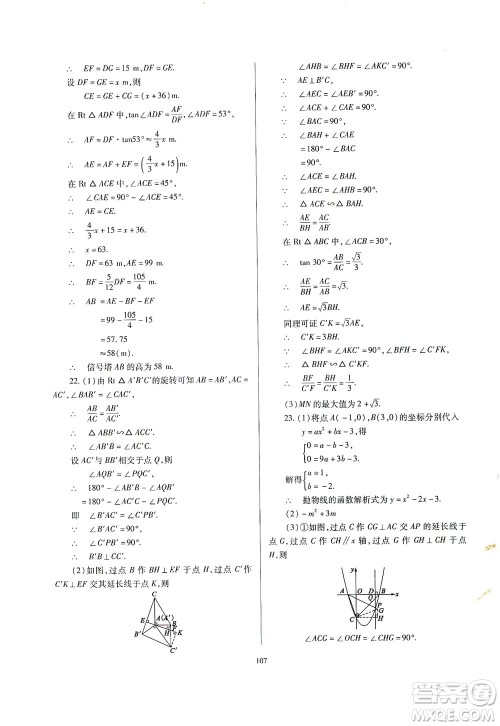 ∴ EF=DG=15 m,DF=GE.
设 DF=GE=x m,则
CE=GE+CG=(x+36)m.
在 Rt △ ADF 中,tan∠ADF=AF/DF,∠ADF=53°,
∴ AF=DF·tan53°≈4/3x,
∴ AE=AF+EF=(4/3x+15)m.
在 Rt △ ACE 中,∠ACE=45°,
∴ ∠CAE=90°-∠ACE=45°,
∴ AE=CE.
∴ 4/3x+15=x+36,
∴ x=63.
∴ DF=63 m,AE=99 m.
∴ BF=5/12DF=105/4 m.
∴ AB=AE-BF-EF
=99-105/4-15
=57.75
≈58(m).
∴ 信号塔 AB 的高为 58 m.
22. (1)由 Rt △ A'B'C'的旋转可知 AB=AB',AC=
AC',∠BAB'=∠CAC',
∴ AB/AC=AB'/AC'.
∴ △ ABB'∽△ ACC'.
∴ ∠AB'B=∠AC'C.
设 AC'与 PB'相交于点 Q,则
∠AQB'=∠PQC',
∴ 180°-∠AB'B-∠AQB'
=180°-∠AC'C-∠PQC',
即 ∠B'AC'=∠C'PB'.
∵ ∠B'AC'=90°,
∴ ∠C'PB'=90°.
∴ BB'⊥CC'.
(2)如图,过点 B 作 BH⊥EF 于点 H,过点 C'作
C'K⊥EF 交其延长线于点 K,则
∠AHB=∠BHF=∠AKC'=90°.
∵ AE⊥B'C',
∴ ∠AEC'=∠AEB'=90°.
∵ ∠BAC=90°,
∴ ∠BAH+∠CAE
=180°-∠BAC
=90°.
∴ ∠CAE=∠ABH.
∴ △ CAE∽△ ABH.
∴ AE/BH=AC/AB.
在 Rt △ ABC 中,∠ACB=30°,
∴ tan 30°=AB/AC=√3/3.
∴ AE/BH=AC/AB=√3.
∴ AE=√3BH.
同理可证 C'K=√3AE,
∴ C'K=3BH.
∵ ∠BHF=∠AKC',∠BFH=∠C'FK,
∴ △ BHF∽△ C'KF.
∴ BF/C'F=BH/C'K=1/3.
(3)MN 的最大值为 2+√3.
23. (1)将点 A(-1,0),B(3,0)的坐标分别代入
y=ax²+bx-3,得
{0=a-b-3,
0=9a+3b-3.
解得{a=1,
b=-2.
∴ 抛物线的函数解析式为 y=x²-2x-3.
(2) -m²+3m
(3)①如图,过点 C 作 CG⊥AC 交 AP 的延长线于
点 G,过点 C 作 CH∥x 轴,过点 G 作 GH⊥CH 于
点 H.
∴ ∠ACG=∠OCH=∠CHG=90°.
107